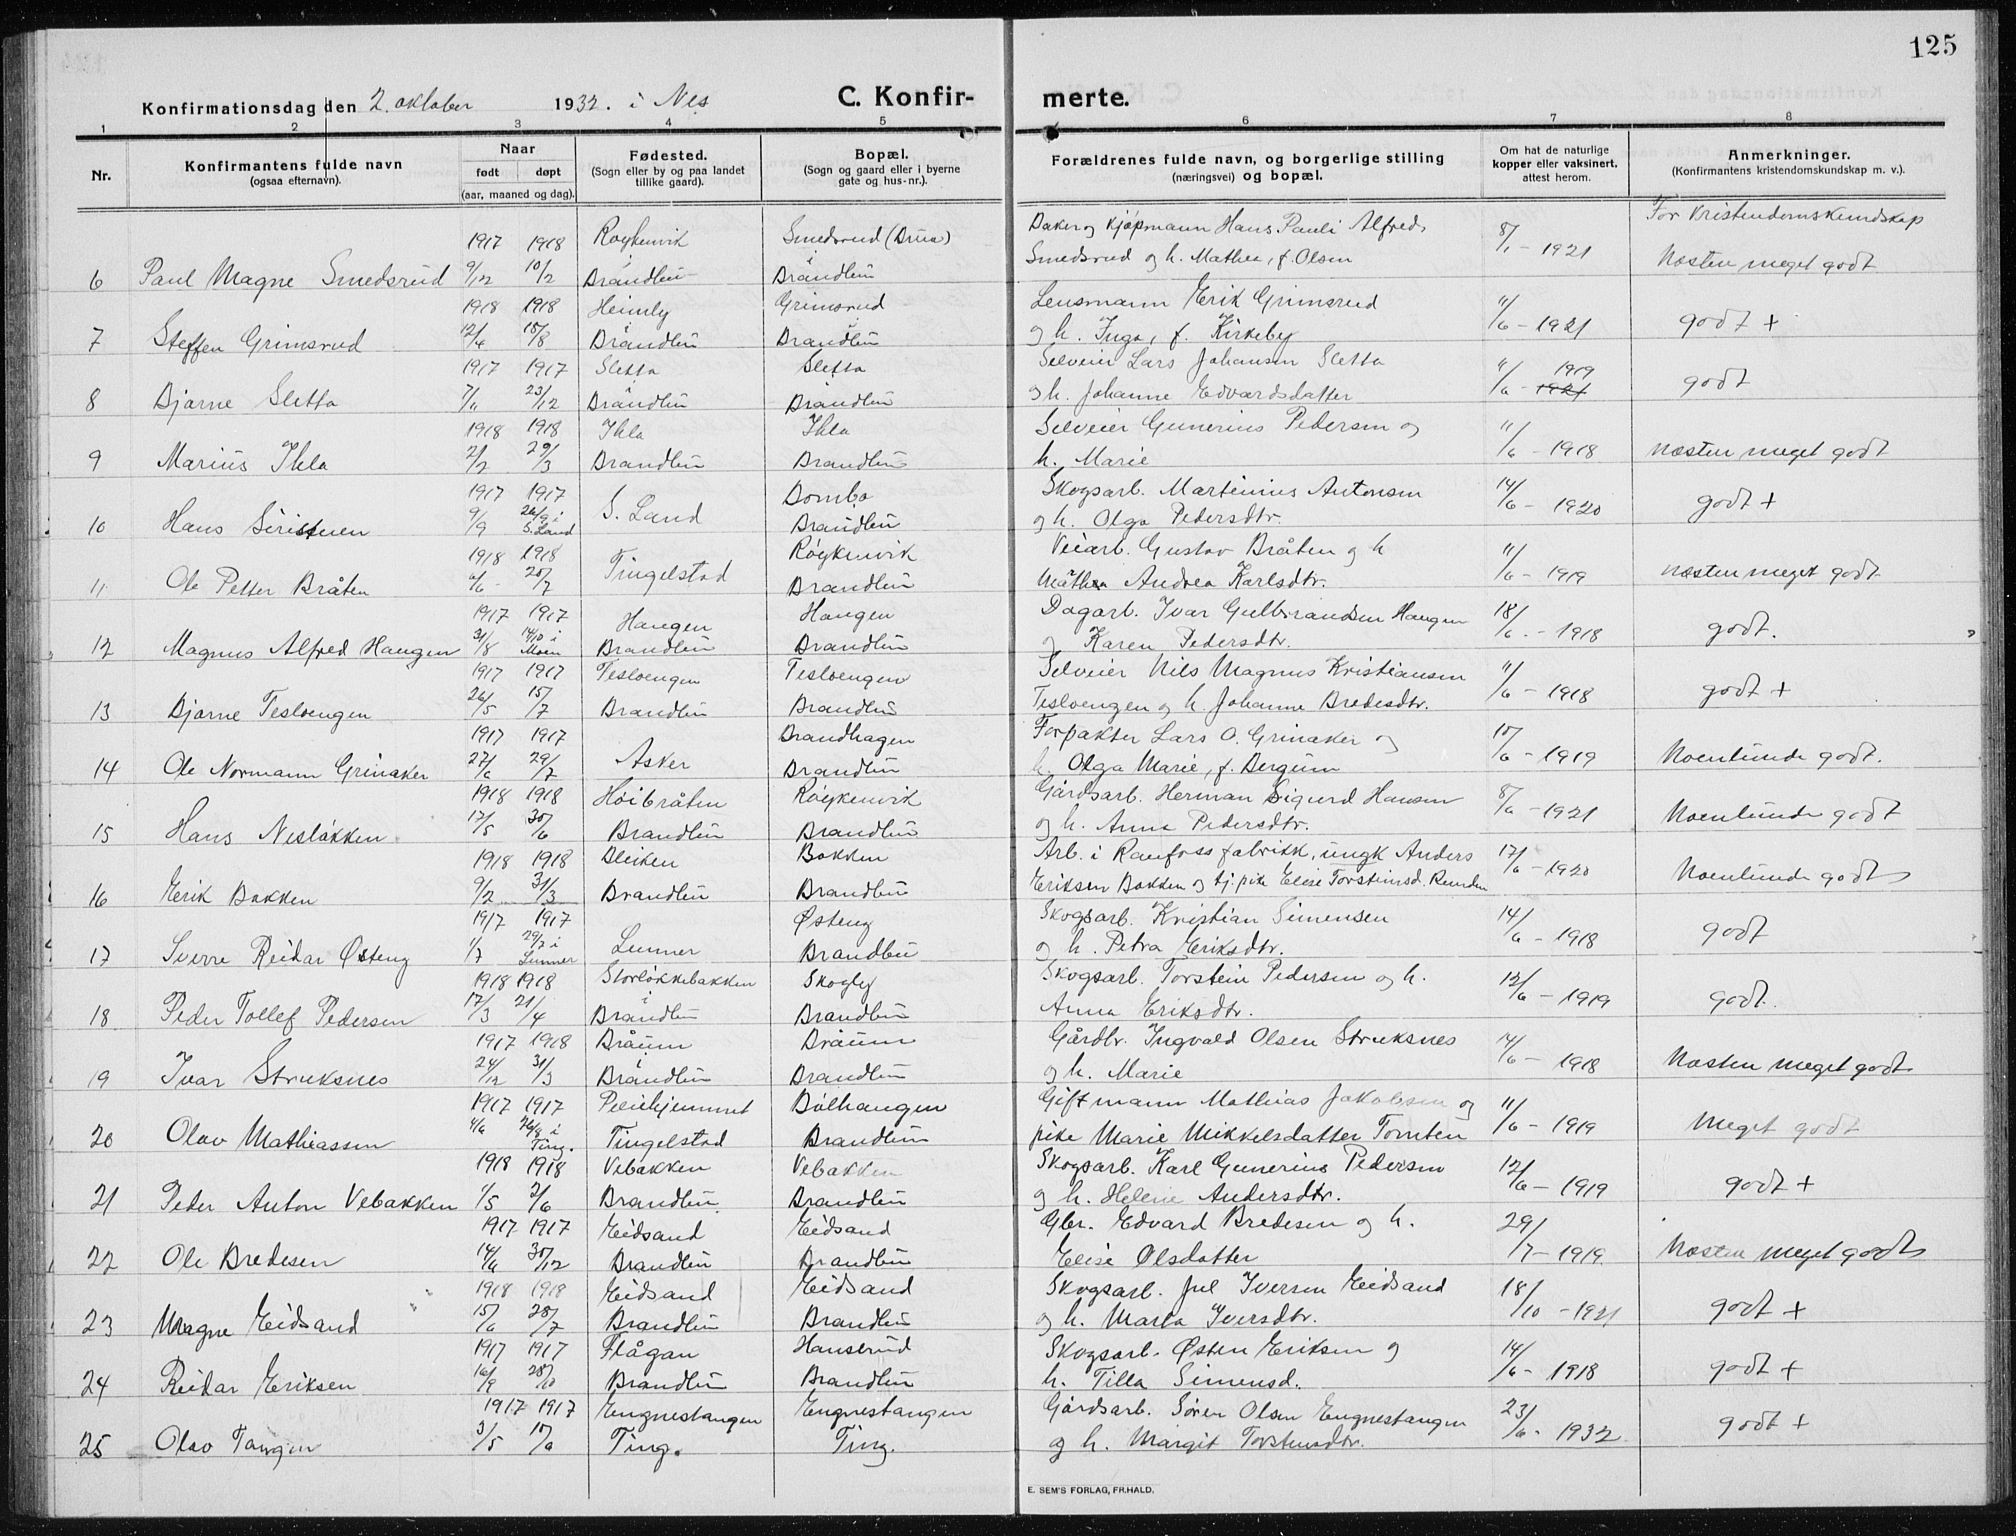 125
Konfirmationsdag den 2. oktober 1932. i Nes C. Konfir- merte.
1 2 3 4 5 6 7 8
Nr. Konfirmantens fulde navn (ogsaa efternavn). Naar født døpt (aar, maaned og dag). Fødested. (Sogn eller by og paa landet tillike gaard). Bopæl. (Sogn og gaard eller i byerne gate og hus-nr.). Forældrenes fulde navn, og borgerlige stilling (næringsvei) og bopæl. Om hat de naturlige kopper eller vaksinert, attest herom. Anmerkninger. (Konfirmantens kristendomskundskap m. v.).
1917 1918 Røykenvik Smedsrud (Brua) Baker og Kjøpmann Hans Pauli Alfreds 8/1 - 1921 For Kristendomskundskap
6 Paul Magne Smedsrud 9/12 10/2 Brandbu Brandbu Smedsrud og h. Mathea, f. Olsen Næsten meget godt
1918 1918 Heimly Grimsrud Lensmann Erik Grimsrud
7 Steffen Grimsrud 12/6 15/8 Brandbu Brandbu og h. Inga, f. Kirkeby 11/6 - 1921 godt +
1917 1917 Sletta Sletta Selveier Lars Johansen Sletta 11/ 1919
8 Bjarne Sletta 7/11 23/12 Brandbu Brandbu og h. Johanne Edvardsdatter /6 - 1921 godt
1918 1918 Ihla Ihla Selveier Gunerius Pedersen og
9 Marius Ihla 2/2 29/3 Brandbu Brandbu h. Marie 11/6 - 1918 Næsten meget godt
1917 1917 S. Land Bomba Skogsarb. Martinius Antonsen
10 Hans 9/9 26/9 i S. Land Brandbu og h. Olga Pedersdtr. 14/6 - 1920 godt +
1918 1918 Tingelstad Røykenvik Veiarb. Gustav Bråten og h
11 Ole Petter Bråten 6/6 - 20/7 Brandbu Mathea Andrea Karlsdtr. 11/6 - 1919 næsten meget godt
1917 1917 Haugen Haugen Dagarb. Ivar Gulbrandsen Haugen
12 Magnus Alfred Haugen 31/8 14/10 i Moen Brandbu Brandbu og Karen Pedersdtr. 18/6. - 1918 godt.
1917 1917 Tesloengen Tesloengen Selveier Nils Magnus Kristiansen
13 Bjarne Tesloengen 26/5 15/7 Brandbu Brandbu Tesloengen og h. Johanne Bredesdtr. 11/6 - 1918 godt +
1917 1917 Asker Brandhagen Forpakter Lars O. Grinaker og
14 Ole Normann Grinaker 27/6 29/7 Brandbu h. Olga Marie, f. Bergum 10/6 - 1919 Noenlunde godt.
1918 1918 Høibråten Røykenvik Gårdsarb. Herman Sigurd Hansen
15 Hans Nesløkken 17/5 30/6 Brandbu Brandbu og h. Anna Pedersdtr. 8/6 - 1921 Noenlunde godt
1918 1918 Bleiken Bakken Arb. i Raufoss fabrikk, ungk Anders
16 Erik Bakken 9/2 31/3 Brandbu Brandbu Eriksen Bakken og tj. pike Elise Torstensd. 17/6 - 1920 Noenlunde godt
1917 1917 Østeng Skogsarb. Kristian Simensen
17 Sverre Reidar Østeng 1/7 29/7 i Lunner Lunner Brandbu og h. Petra Eriksdtr. 14/6 - 1918 godt
1918 1918 Storløkkebakken Skogly Skogsarb. Torstein Pedersen og h.
18 Peder Tollef Pedersen 17/3 21/4 i Brandbu Brandbu Anna Eriksdtr. 12/6 - 1919 godt.
1917 1918 Bråum Bråum Gårdbr. Ingvald Olsen Struksnes
19 Ivar Struksnes 24/12 31/3 i Brandbu Brandbu og h. Marie 14/6 - 1918 Næsten meget godt
1917 1917 Pleiehjemmet Bølhaugen Gift mann Mathias Jakobsen og
20 Olav Mathiassen 4/6 26/8 i Ting. Tingelstad Brandbu pike Marie Mikkelsdatter Tomten 11/6 - 1919 Meget godt
1918 1918 Vebakken Vebakken Skogsarb. Karl Gunerius Pedersen
21 Peder Anton Vebakken 1/5 2/6 Brandbu Brandbu og h. Helene Andersdtr. 12/6 - 1919 godt +
1917 1917 Eidsand Eidsand Gbr. Edvard Bredesen og h.
22 Ole Bredesen 14/11 30/12 Brandbu Brandbu Elise Olsdatter 29/7 - 1919 Næsten meget godt
1918 1918 Eidsand Eidsand Skogsarb. Jul Iversen Eidsand
23 Magne Eidsand 15/6 28/7 Brandbu Brandbu og h. Marta Iversdtr. 18/10 - 1921 godt +
1917 1917 Flågan Hanserud Skogsarb. Østen Eriksen og
24 Reidar Eriksen 16/9 28/10 Brandbu Brandbu h. Tilla Simensd. 14/6 - 1918 godt +
1917 1917 Engnestangen Engnestangen Gårdsarb. Søren Olsen Engnestangen
25 Olav Tangen 3/5 10/6 Ting. Ting. og h. Margit Torstensdtr. 23/6. - 1932 godt +
E. SEM'S FORLAG, FR.HALD.